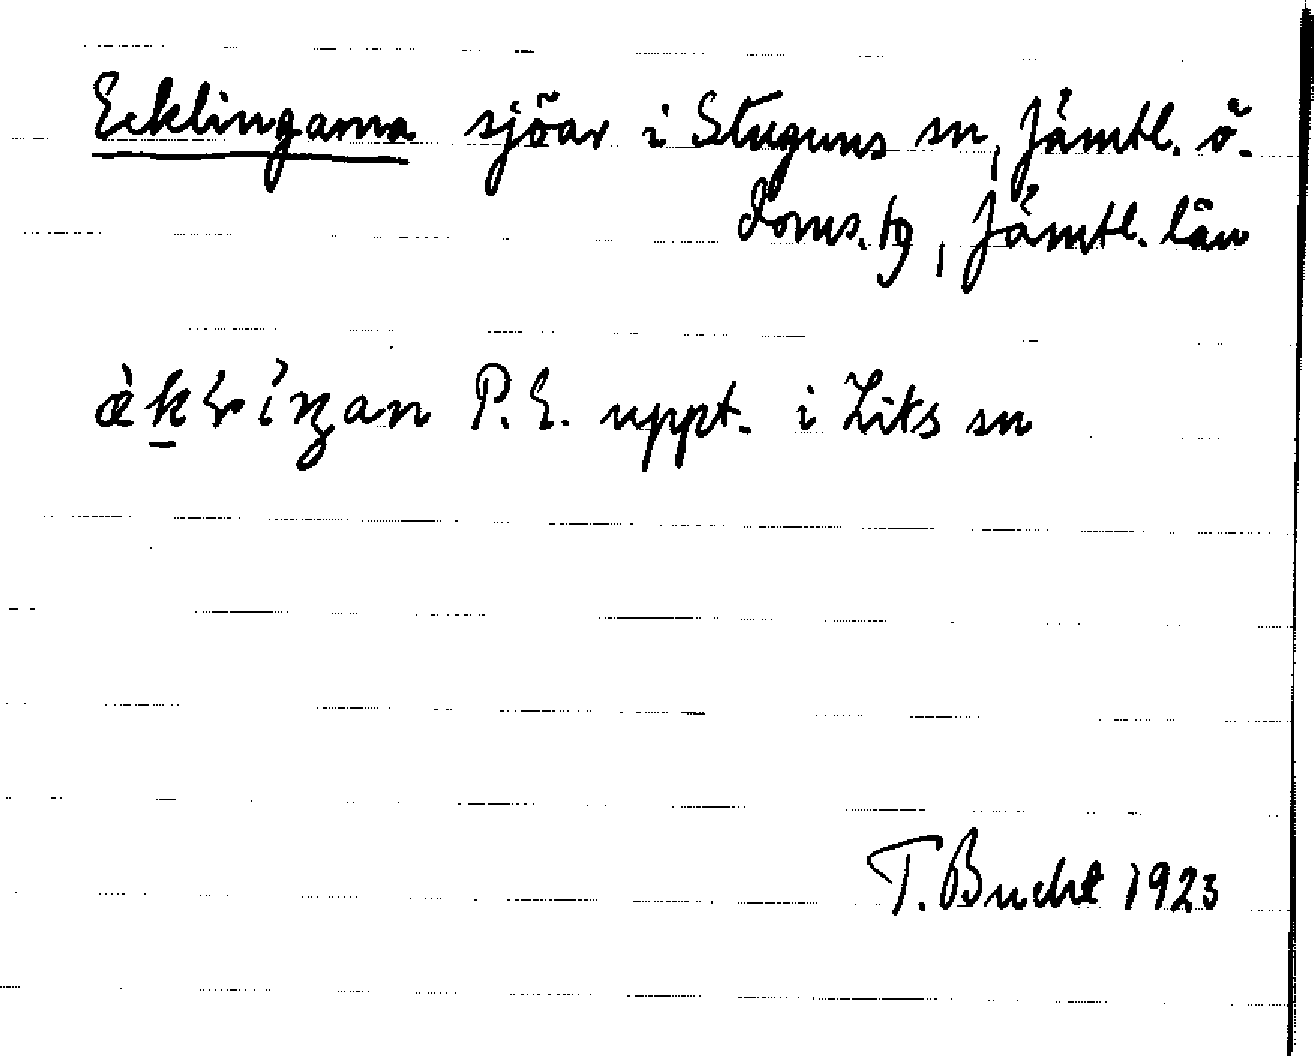 Ecklingarna sjöar i Stuguns sn, Jämtl. ö.
Doms. tg, Jämtl. län
P. E. uppt. i Lits sn
T. Bucht 1923